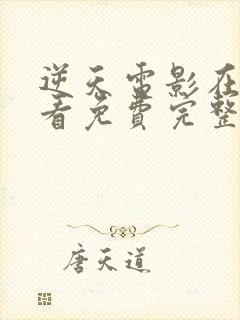 逆天雷影在
看免费完整
唐天道